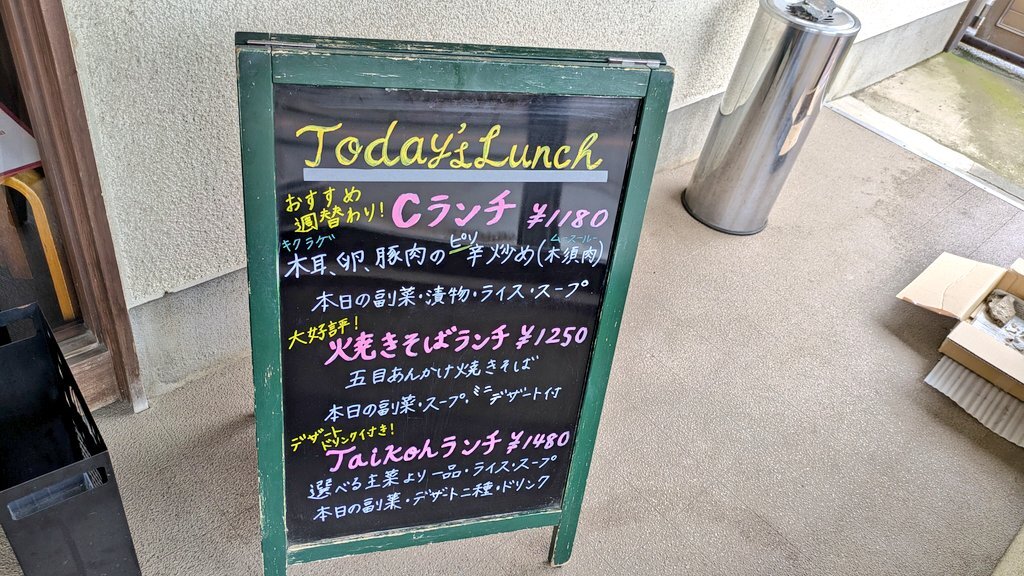 Today's Lunch
おすすめ
週替わり! Cランチ ¥1180
キクラゲ ピリ ムースールー
木耳、卵、豚肉の辛炒め(木須肉)
本日の副菜・漬物・ライス・スープ
大好評!
火焼きそばランチ ¥1250
五目あんかけ焼きそば
本日の副菜・スープ、ミニデザート付
デザート
ドリンク付き!
Taikohランチ ¥1480
選べる主菜より一品・ライス・スープ
本日の副菜・デザート二種・ドリンク